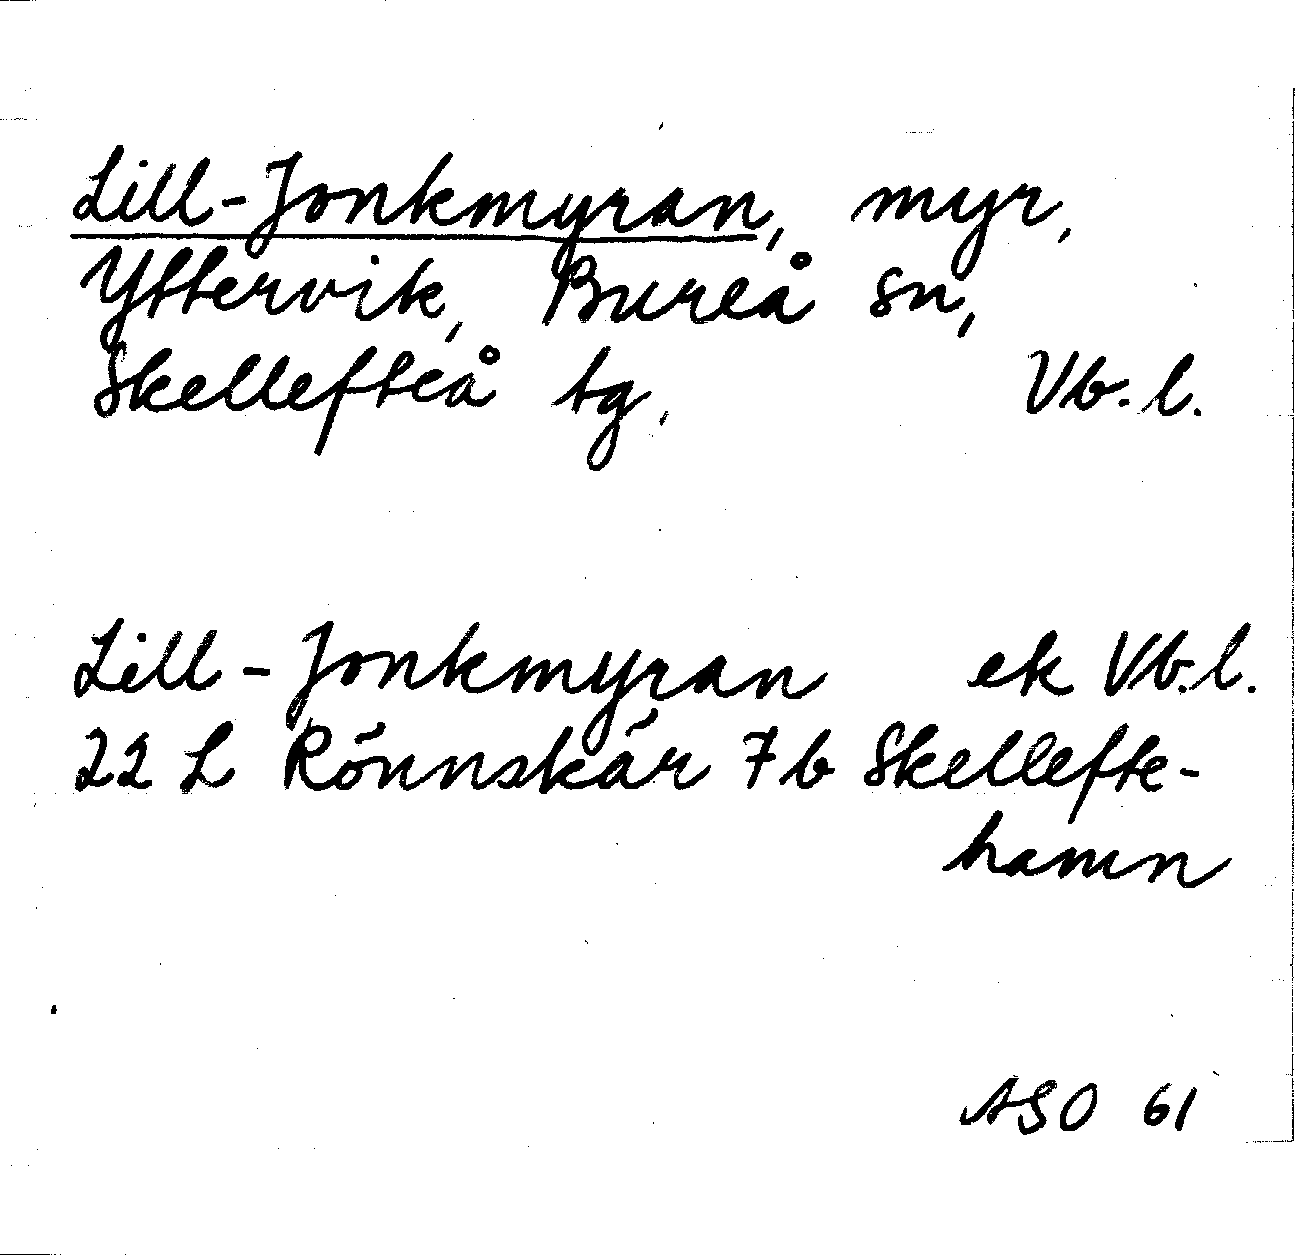 Lill-Jonkmyran, myr,
Yttervik, Bureå sn,
Skellefteå tg. Vb. l.
Lill-Jonkmyran ek Vb.l.
22 L Rönnskär 7b Skellefte-
hamn
ASO 61